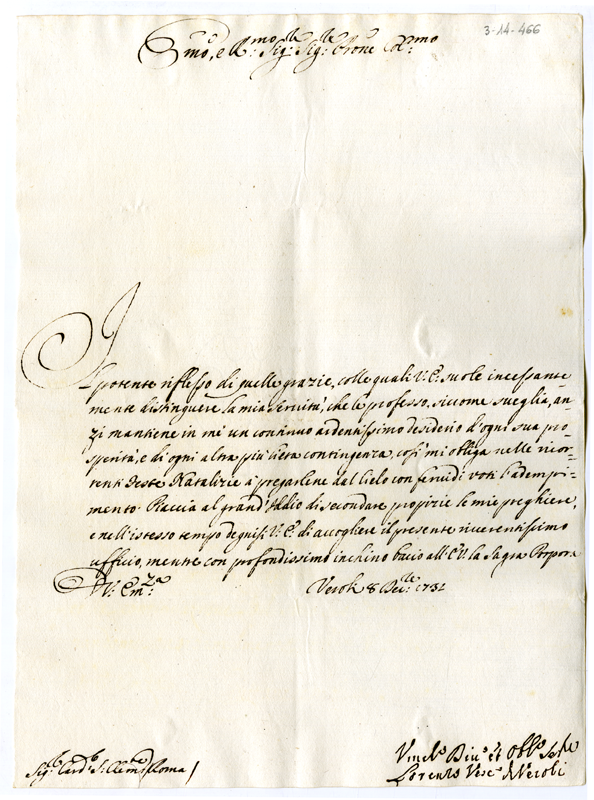 3-14-466
Emo, e Rmo Sig: Sig: Prone Col:mo
Il potente riflesso di quelle grazie, colle quali V: E. suole incessante
mente distinguere la mia servitù, che le professo, siccome sveglia, an-
zi mantiene in me un continuo ardentissimo desiderio d'ogni sua pro-
sperità, e di ogni altra più lieta contingenza, così mi obliga nelle ricor-
renti feste Natalizie à pregarlene dal Cielo con fervidi voti l'adempi-
mento. Piaccia al grand'Iddio di secondare propizie le mie preghiere,
e nell'istesso tempo degnisi V: E. di accogliere il presente riverentissimo
ufficio, mentre con profondissimo inchino bacio all'E.V. la Sagra Porpora
D V: Em:za
Veroli 8 Dec:lle 1731
Sig:r Card: S: Clem:te Roma
Vmil:o Diu:o et Obb:o Ser:e
Lorenzo Vesc:o di Veroli